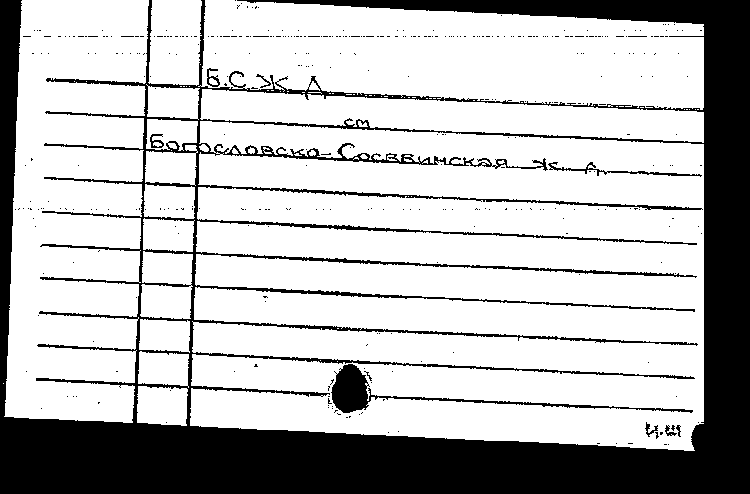 Б.С.Ж Д
см
Богословско-Сосьвинская ж д